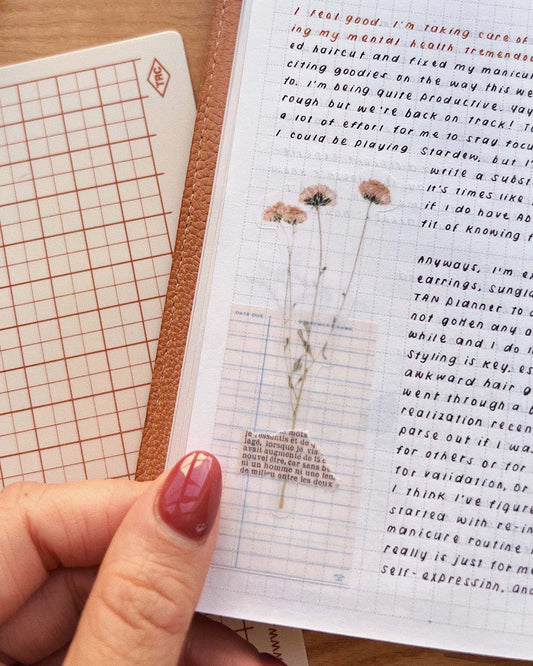 TRC
I feel good. I'm taking care of
ing my mental health tremendou
ed haircut and fixed my manicur
citing goodies on the way this we
to. I'm being quite productive. Yay
rough but we're back on track! To
a lot of effort for me to stay focu
I could be playing Stardew, but I'
write a subst
It's times like
if I do have AD
fit of knowing f
Anyways, I'm e
earrings, sungla
TAN planner to
not gotten any o
while and I do l
styling is key, es
awkward hair g
went through a b
realization recen
parse out if I wa
for others or for
for validation, or
I think I've figure
started with re-in
manicure routine
really is just for me
self-expression, and
DATE DUE
BORROWER'S NAME
mots
je ressentis et de
lagé, lorsque je vis
avait augmenté de
nouvel être, car sans
ni un homme ni une fem,
de milieu entre les deux
TRC